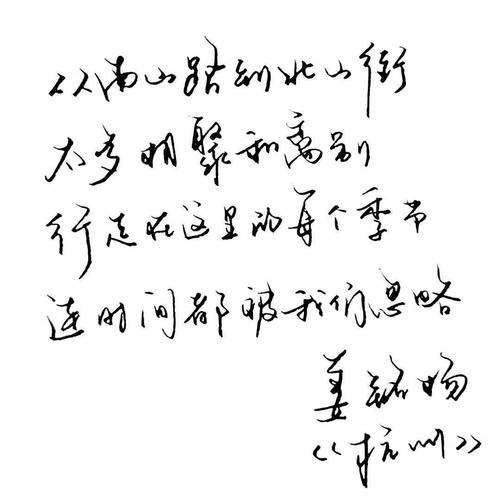 从南山路到北山街
太多相聚和离别
行走在这里的每个季节
连时间都被我们忽略
姜铭杨
《杭州》